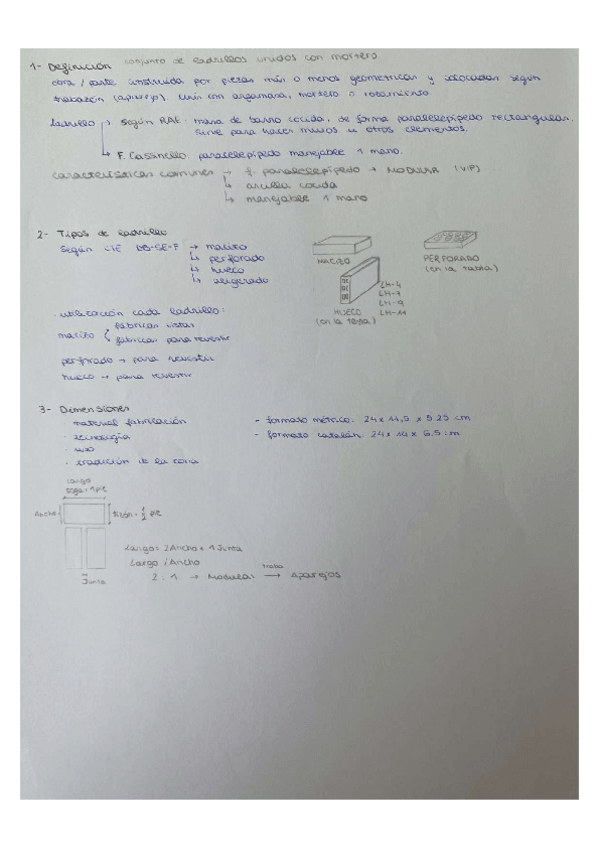 1- Definición conjunto de ladrillos unidos con mortero
obra / parte construida por piezas más o menos geometricas y colocadas según
trabazón (aparejo). Unión con argamasa, mortero o rozamiento
Ladrillo → Según RAE: masa de barro cocida, de forma paralelepípedo rectangular.
Sirve para hacer muros u otros elementos.
↳ F. Cassinello: paralelepípedo manejable 1 mano.
características comunes → paralelepípedo → MODULAR
↳ arcilla cocida
↳ manejable 1 mano
2- Tipos de ladrillo
Según CTE DB-SE-F → macizo
↳ perforado
↳ hueco
↳ aligerado
MACIZO
PERFORADO
(en la tabla)
HUECO
(en la testa)
LH-4
LH-7
LH-9
LH-11
· utilización cada ladrillo:
macizo
fábricas vistas
fábricas para revestir
perforado → para revestir
hueco → para revestir
3- Dimensiones
· material fabricación
· tecnología
· uso
· tradición de la zona
- formato métrico: 24 x 11,5 x 5.25 cm
- formato catalán: 29 x 14 x 6.5 cm
Largo
soga = 1 pie
Ancho
tizón = 1/2 pie
Junta
Largo = 2 Ancho + 1 Junta
Largo / Ancho
2 : 1 → Modular → Aparejos
Traba